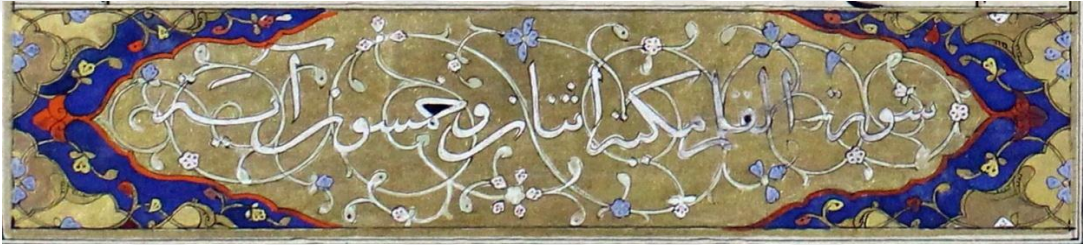 سورة القلم مكية اثنان وخمسون آية